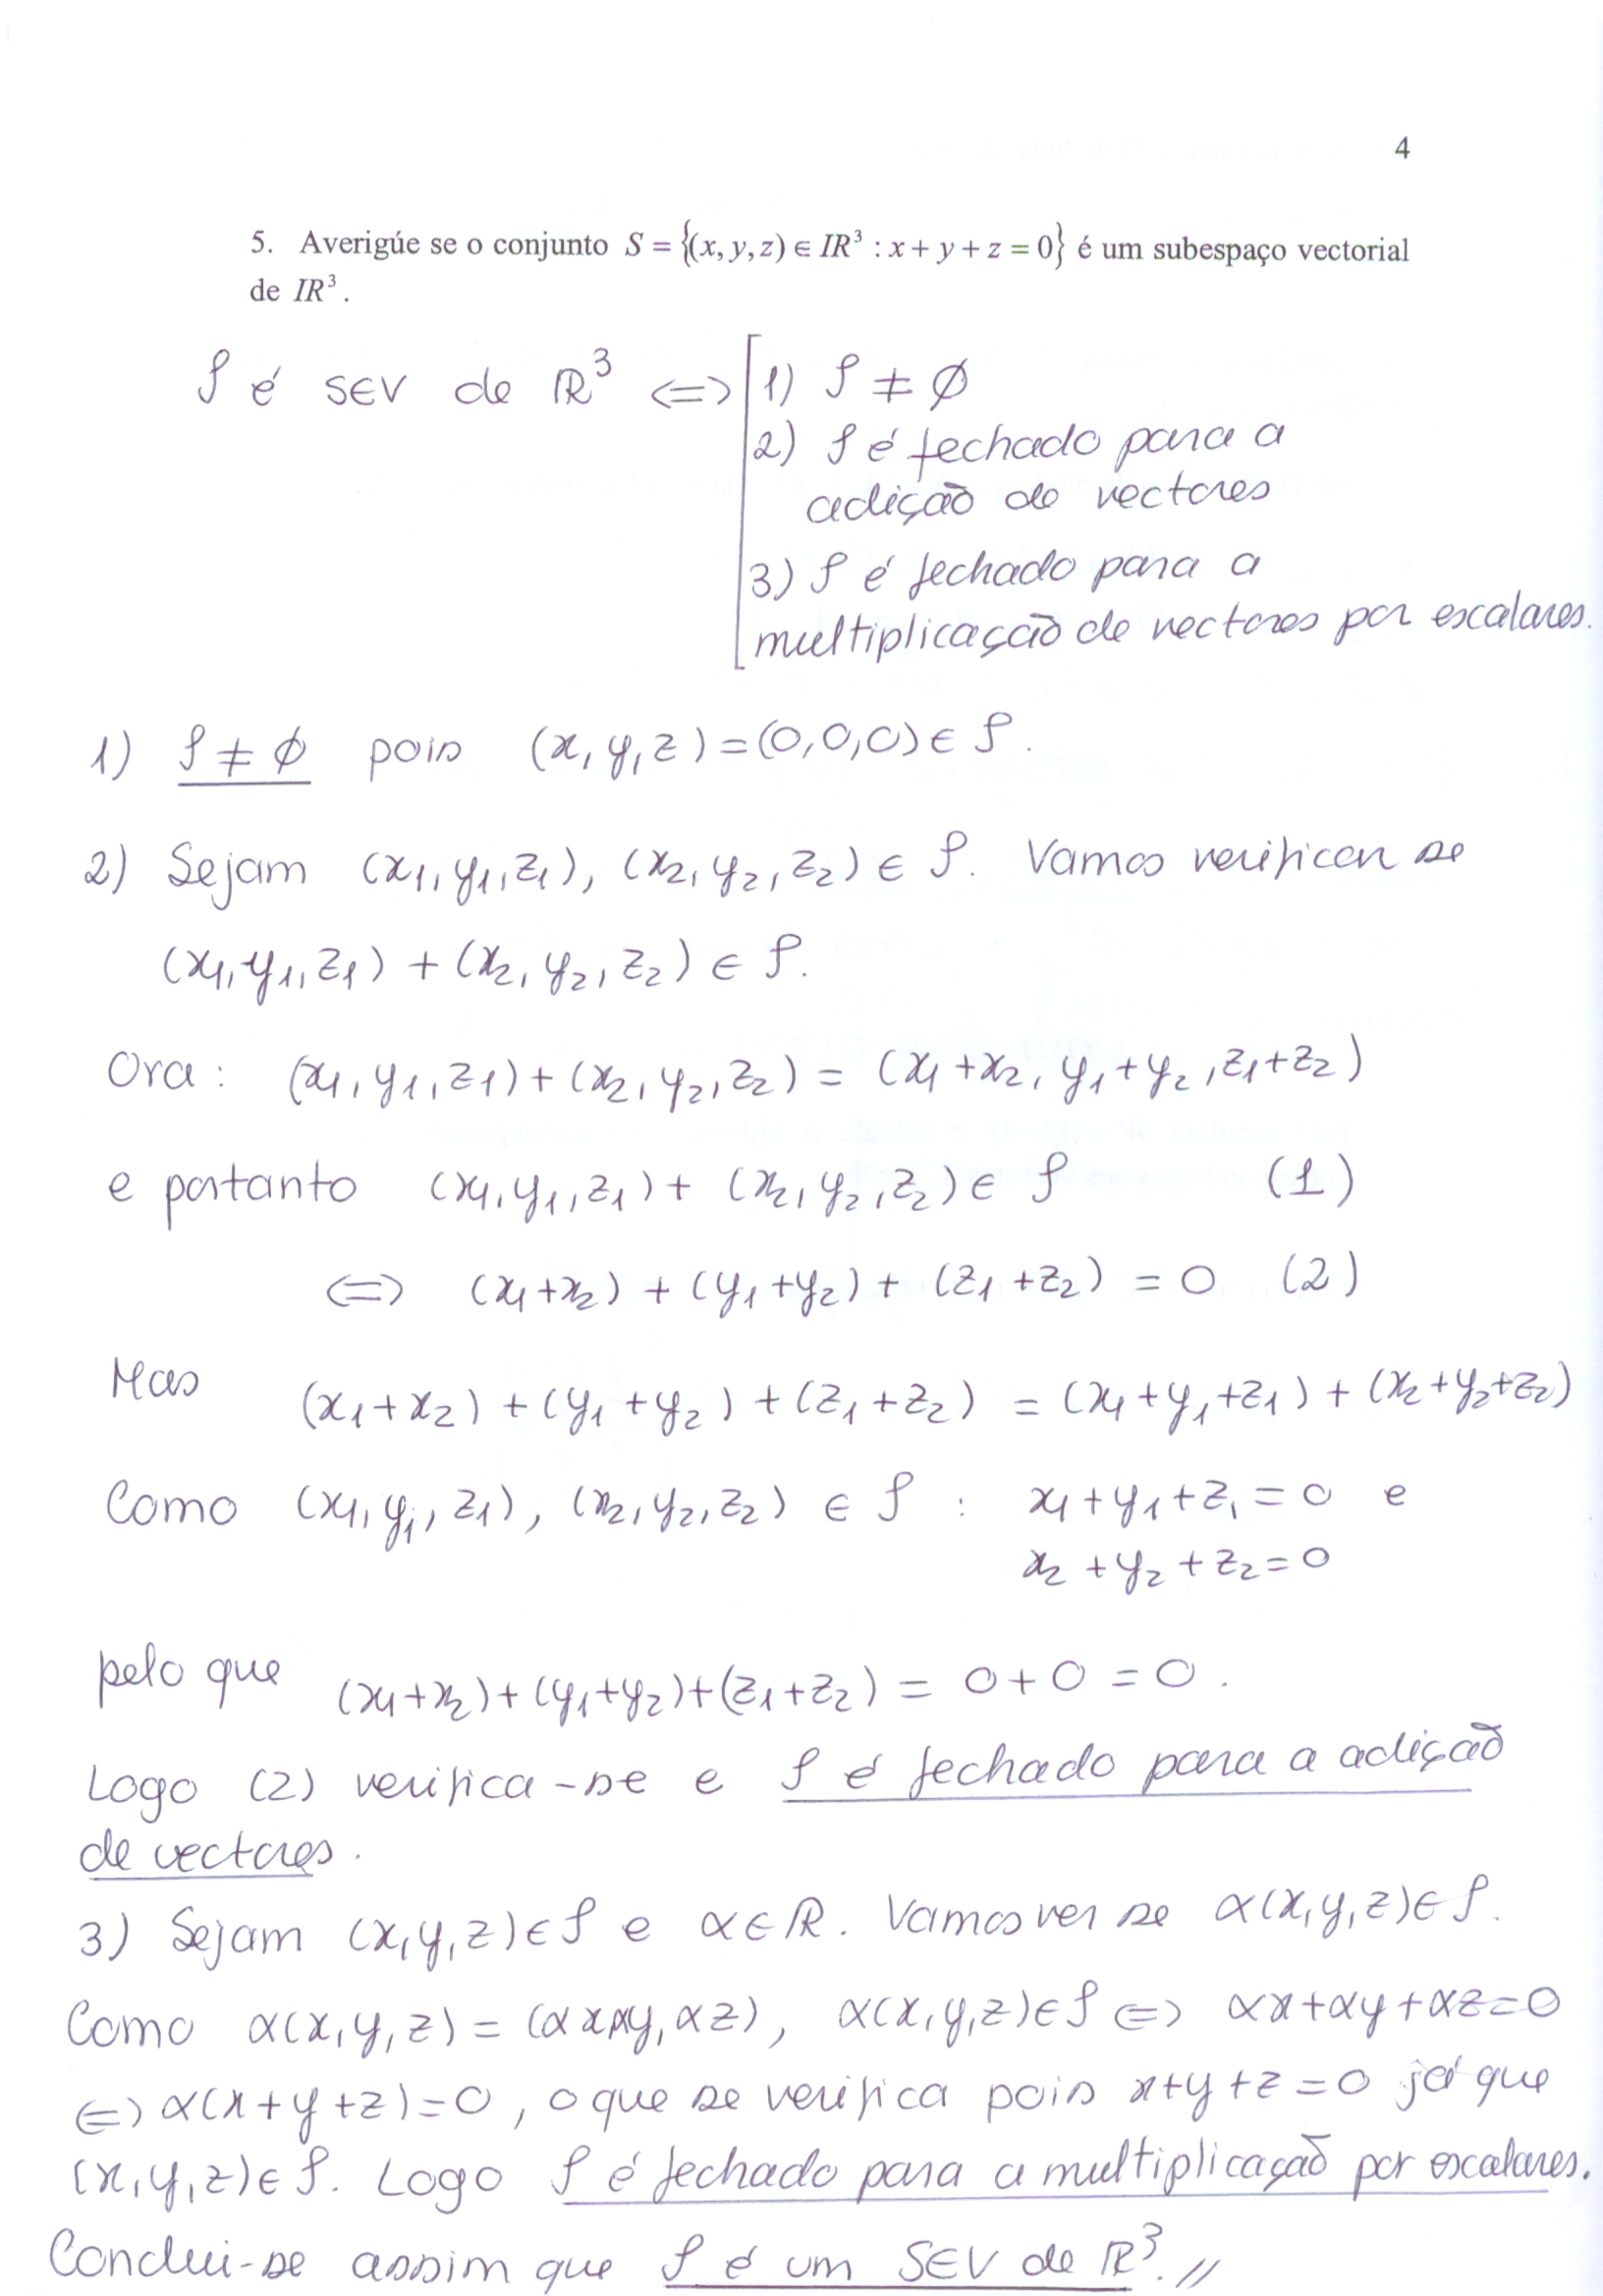 4
5. Averigúe se o conjunto S = {(x, y, z) ∈ IR³ : x + y + z = 0} é um subespaço vectorial
de IR³.
S é SEV de ℝ³ ⇔ 1) S ≠ ∅
2) S é fechado para a
adição de vectores
3) S é fechado para a
multiplicação de vectores por escalares.
1) S ≠ ∅ pois (x, y, z) = (0, 0, 0) ∈ S.
2) Sejam (x₁, y₁, z₁), (x₂, y₂, z₂) ∈ S. Vamos verificar se
(x₁, y₁, z₁) + (x₂, y₂, z₂) ∈ S.
Ora: (x₁, y₁, z₁) + (x₂, y₂, z₂) = (x₁ + x₂, y₁ + y₂, z₁ + z₂)
e portanto (x₁, y₁, z₁) + (x₂, y₂, z₂) ∈ S (1)
⇔ (x₁ + x₂) + (y₁ + y₂) + (z₁ + z₂) = 0 (2)
Mas (x₁ + x₂) + (y₁ + y₂) + (z₁ + z₂) = (x₁ + y₁ + z₁) + (x₂ + y₂ + z₂)
Como (x₁, y₁, z₁), (x₂, y₂, z₂) ∈ S : x₁ + y₁ + z₁ = 0 e
x₂ + y₂ + z₂ = 0
pelo que (x₁ + x₂) + (y₁ + y₂) + (z₁ + z₂) = 0 + 0 = 0.
Logo (2) verifica-se e S é fechado para a adição
de vectores.
3) Sejam (x, y, z) ∈ S e α ∈ ℝ. Vamos ver se α(x, y, z) ∈ S.
Como α(x, y, z) = (αx, αy, αz), α(x, y, z) ∈ S ⇔ αx + αy + αz = 0
⇔ α(x + y + z) = 0, o que se verifica pois x + y + z = 0 já que
(x, y, z) ∈ S. Logo S é fechado para a multiplicação por escalares.
Conclui-se assim que S é um SEV de ℝ³. //